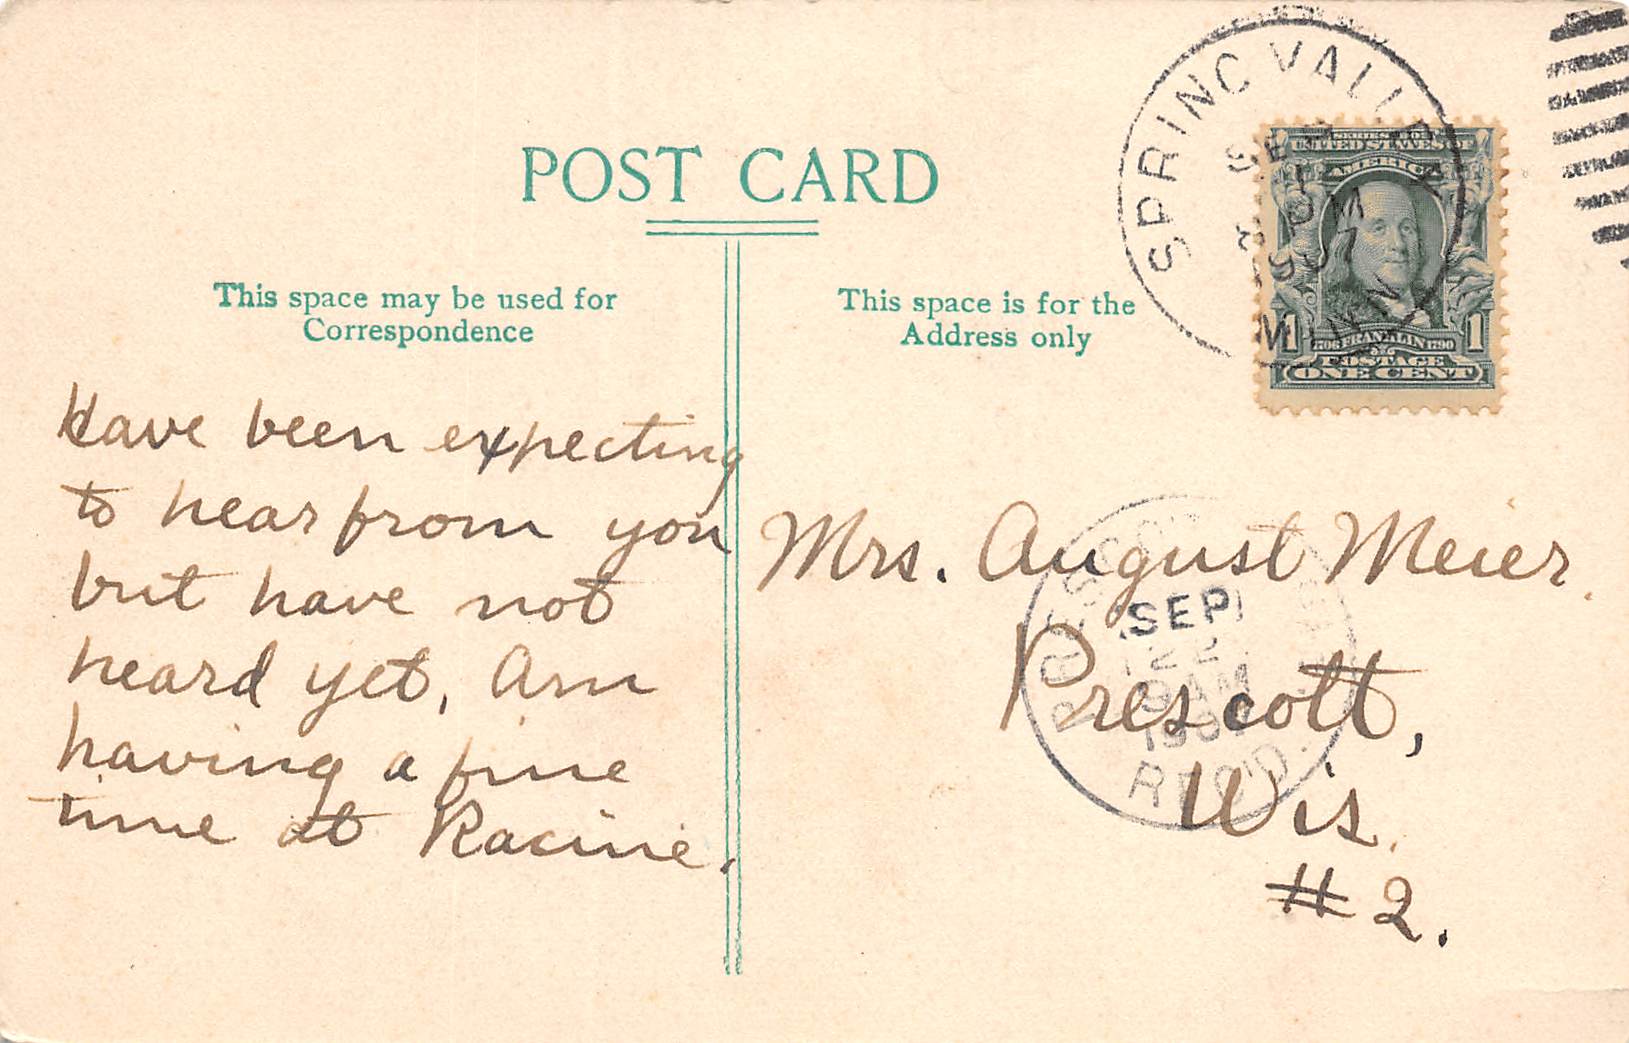 POST CARD
This space may be used for
Correspondence
This space is for the
Address only
SPRING VALLEY
SEP
PM
1907
MINN.
SERIES 1902
UNITED STATES OF
AMERICA
1 1706 FRANKLIN 1790 1
POSTAGE
ONE CENT
Have been expecting
to hear from you
but have not
heard yet, Am
having a fine
time at Racine.
Mrs. August Meier.
Prescott,
Wis.
#2.
PRESCOTT
SEP
22
9 AM
REC'D.